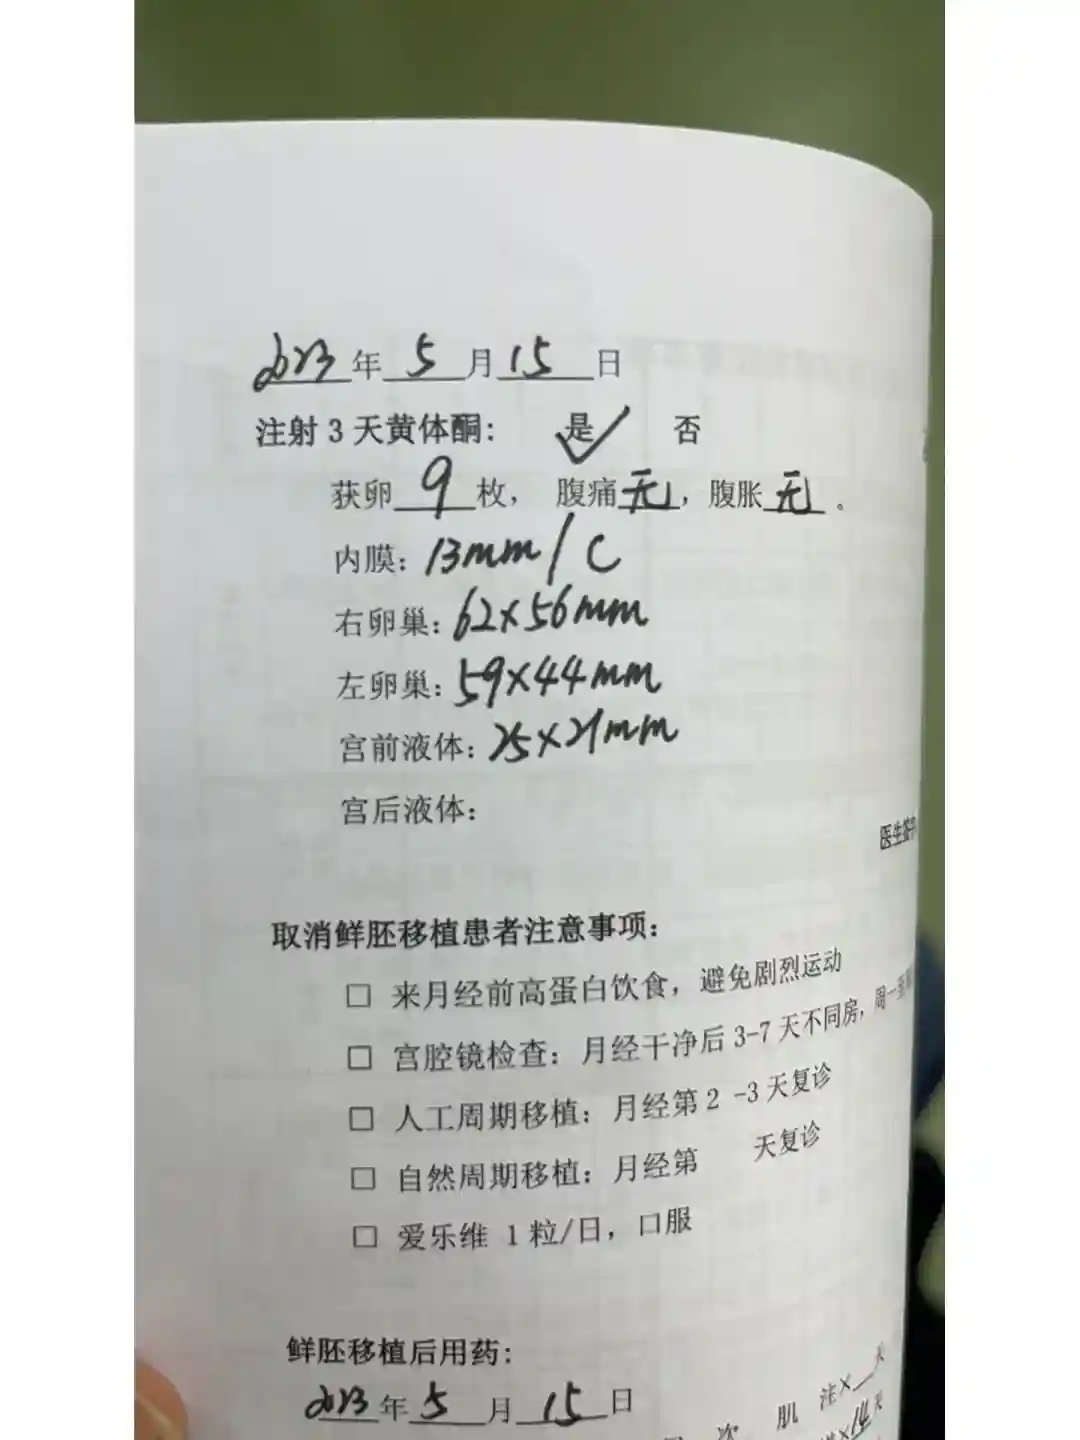 2023年 5 月 15 日
注射 3 天黄体酮： 是✓ 否
获卵 9 枚， 腹痛 无，腹胀 无 。
内膜：13mm / C
右卵巢：62×56mm
左卵巢：59×44mm
宫前液体：25×21mm
宫后液体：
医生签字
取消鲜胚移植患者注意事项：
□ 来月经前高蛋白饮食，避免剧烈运动
□ 宫腔镜检查：月经干净后 3-7 天不同房，周一至
□ 人工周期移植：月经第 2 -3 天复诊
□ 自然周期移植：月经第 天复诊
□ 爱乐维 1 粒/日，口服
鲜胚移植后用药：
2023年 5 月 15 日
次 肌 注× 天
×14天